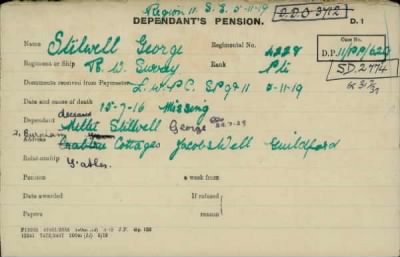 Region 11. S.2. 5-11-19
D.D.O 3712
DEPENDANT'S PENSION.
D. 1
Name Stilwell George
Regimental No. 4228
Case No.
D.P. 11/PP/629
Regiment or Ship R. W. Surrey
Rank Pte
SD. 2774
Documents received from Paymaster L.W.P.C. 5-11-19
Date and cause of death 15-7-16 Missing
deceased
Dependant Stilwell George
2, Burnham
Address Cottages Jacobs Well Guildford
Relationship Father
Pension a week from
Date awarded If refused
Papers reason